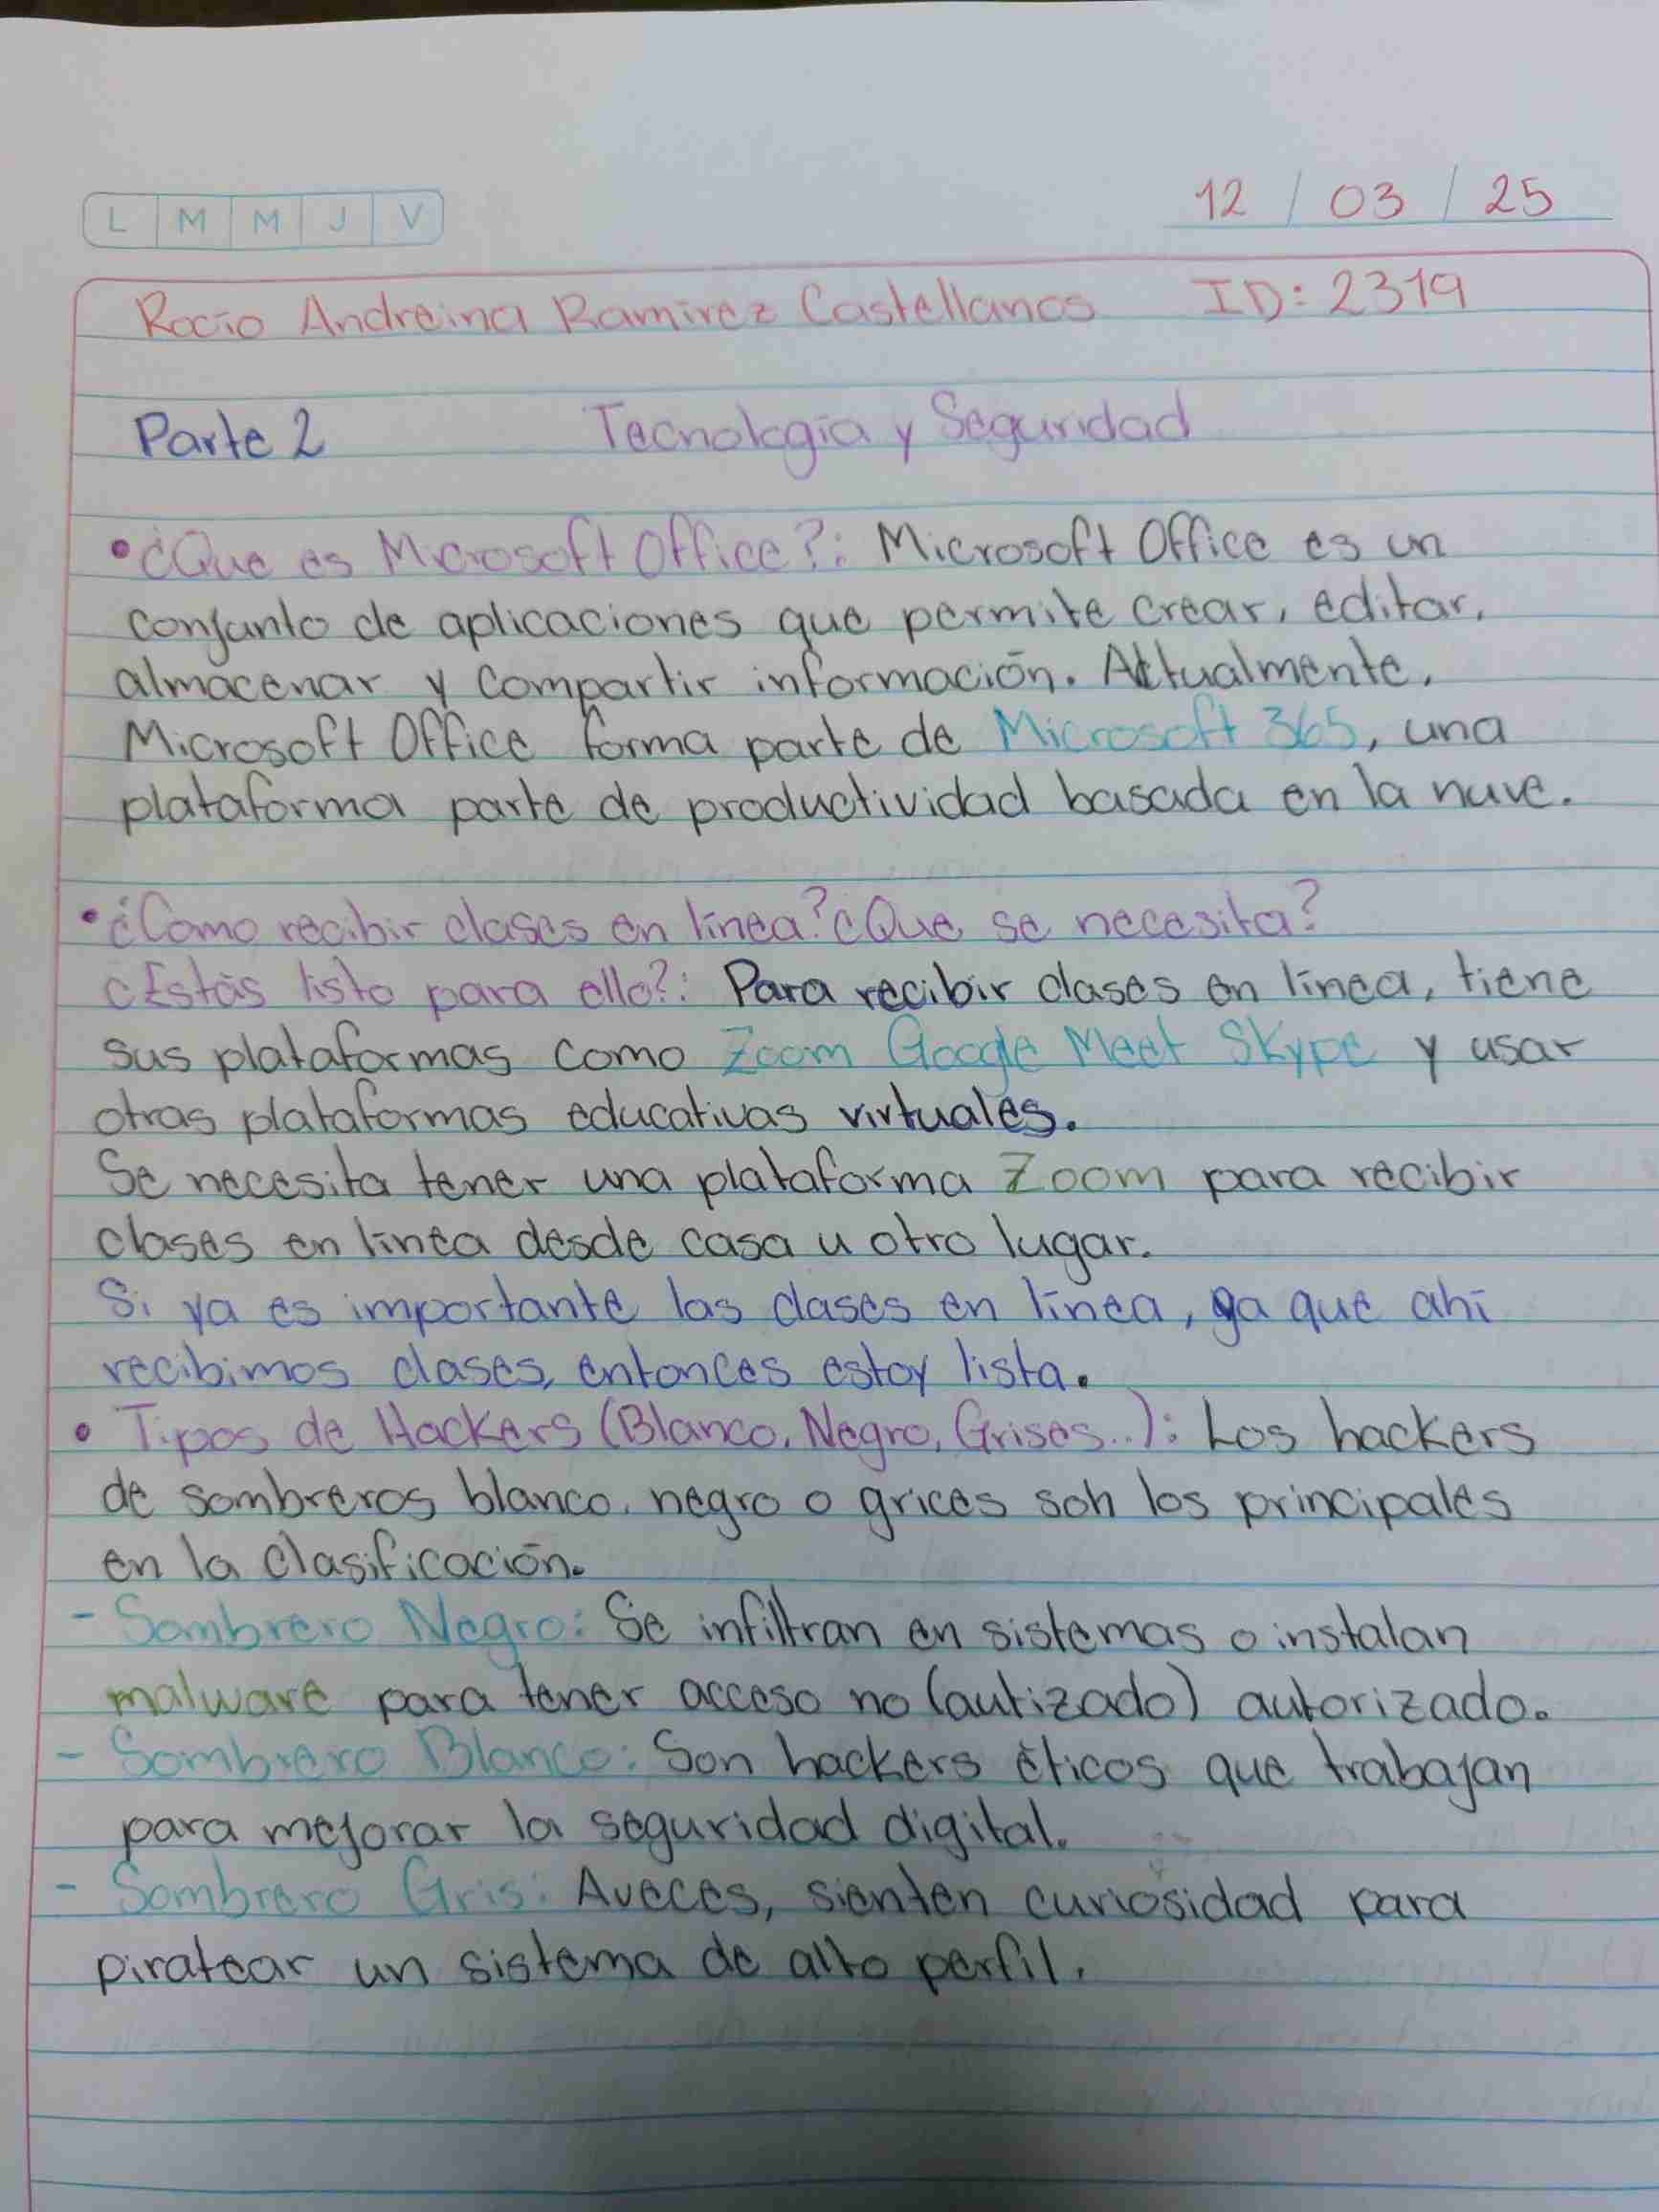 L M M J V
12 / 03 / 25
Rocío Andreina Ramirez Castellanos ID: 2319
Parte 2 Tecnología y Seguridad
• ¿Que es Microsoft Office?: Microsoft Office es un
conjunto de aplicaciones que permite crear, editar,
almacenar y compartir información. Actualmente,
Microsoft Office forma parte de Microsoft 365, una
plataforma parte de productividad basada en la nuve.
• ¿Como recibir clases en línea? ¿Que se necesita?
¿Estás listo para ello?: Para recibir clases en línea, tiene
sus plataformas como Zoom Google Meet Skype y usar
otras plataformas educativas virtuales.
Se necesita tener una plataforma Zoom para recibir
clases en línea desde casa u otro lugar.
Si ya es importante las clases en línea, ya que ahí
recibimos clases, entonces estoy lista.
• Tipos de Hackers (Blanco, Negro, Grises...): Los hackers
de sombreros blanco, negro o grices son los principales
en la clasificación.
- Sombrero Negro: Se infiltran en sistemas o instalan
malware para tener acceso no (autizado) autorizado.
- Sombrero Blanco: Son hackers éticos que trabajan
para mejorar la seguridad digital.
- Sombrero Gris: Aveces, sienten curiosidad para
piratear un sistema de alto perfil.